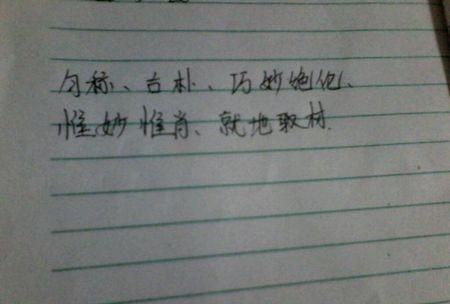 匀称、古朴、巧妙绝伦、
惟妙惟肖、就地取材.